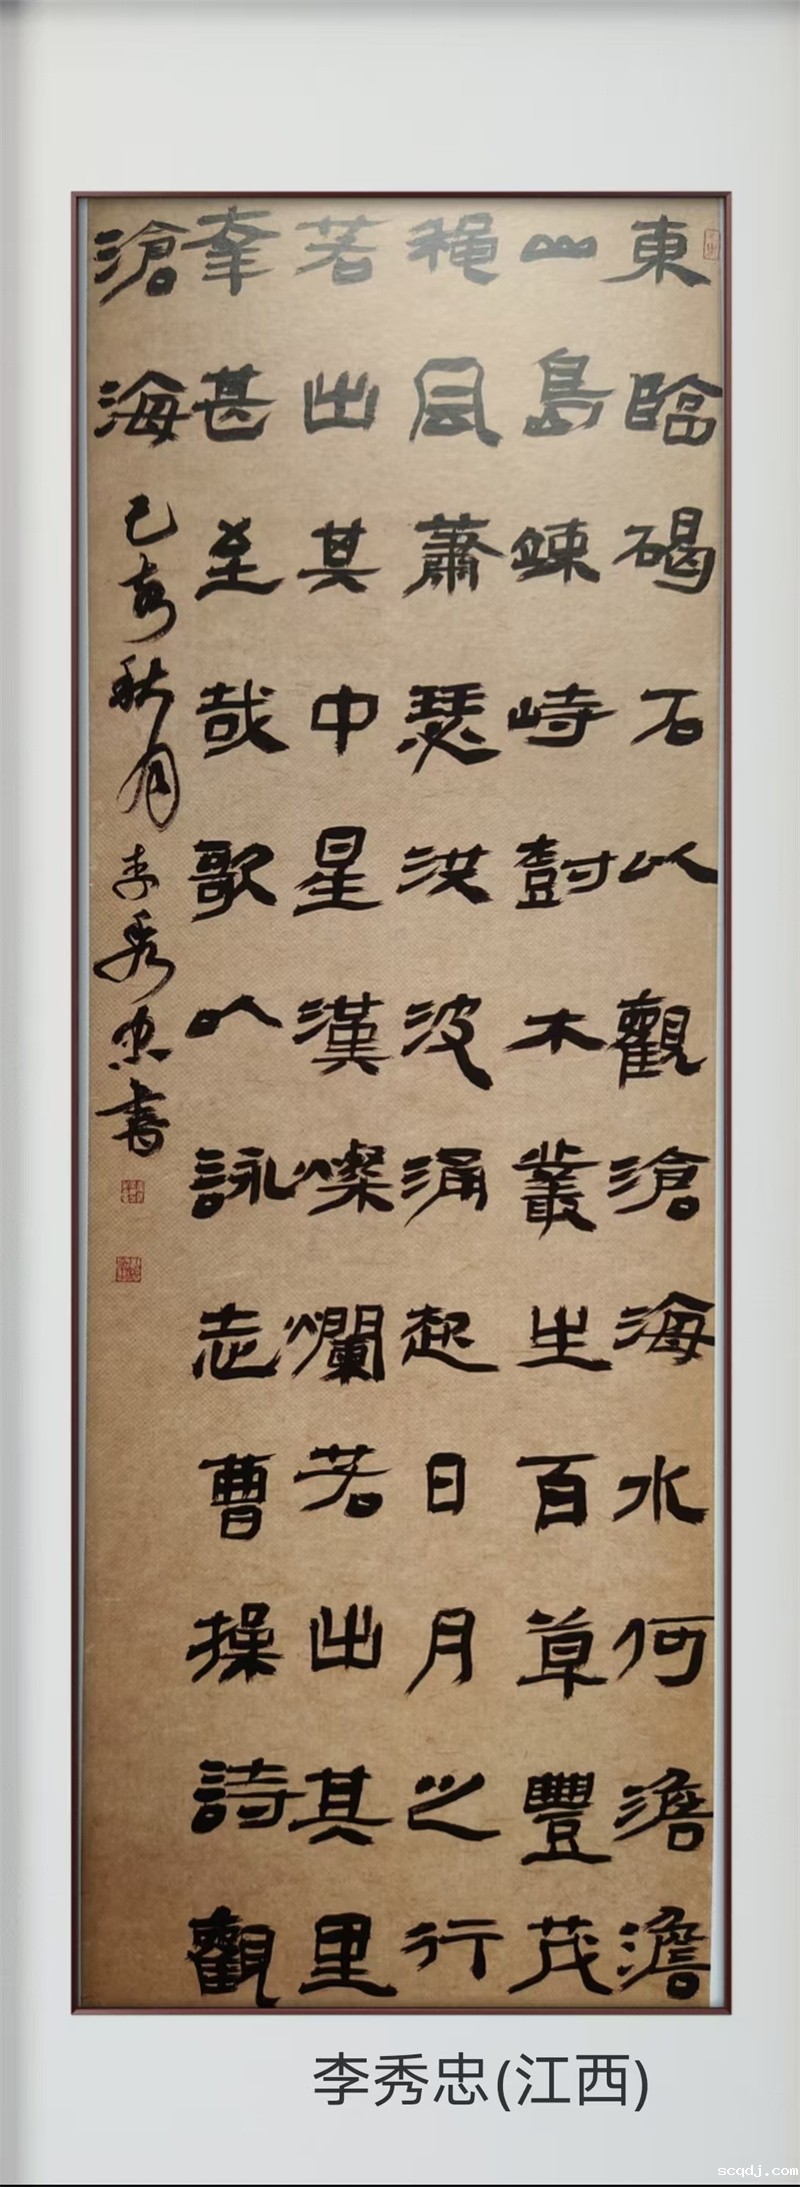 東臨碣石以觀滄海水何澹澹
山島竦峙樹木叢生百草豐茂
穐風蕭瑟洪波涌起日月之行
若出其中星漢燦爛若出其里
幸甚至哉歌以詠志曹操詩觀
滄海 己亥秋月李秀忠書
李秀忠(江西)
scqdj.com